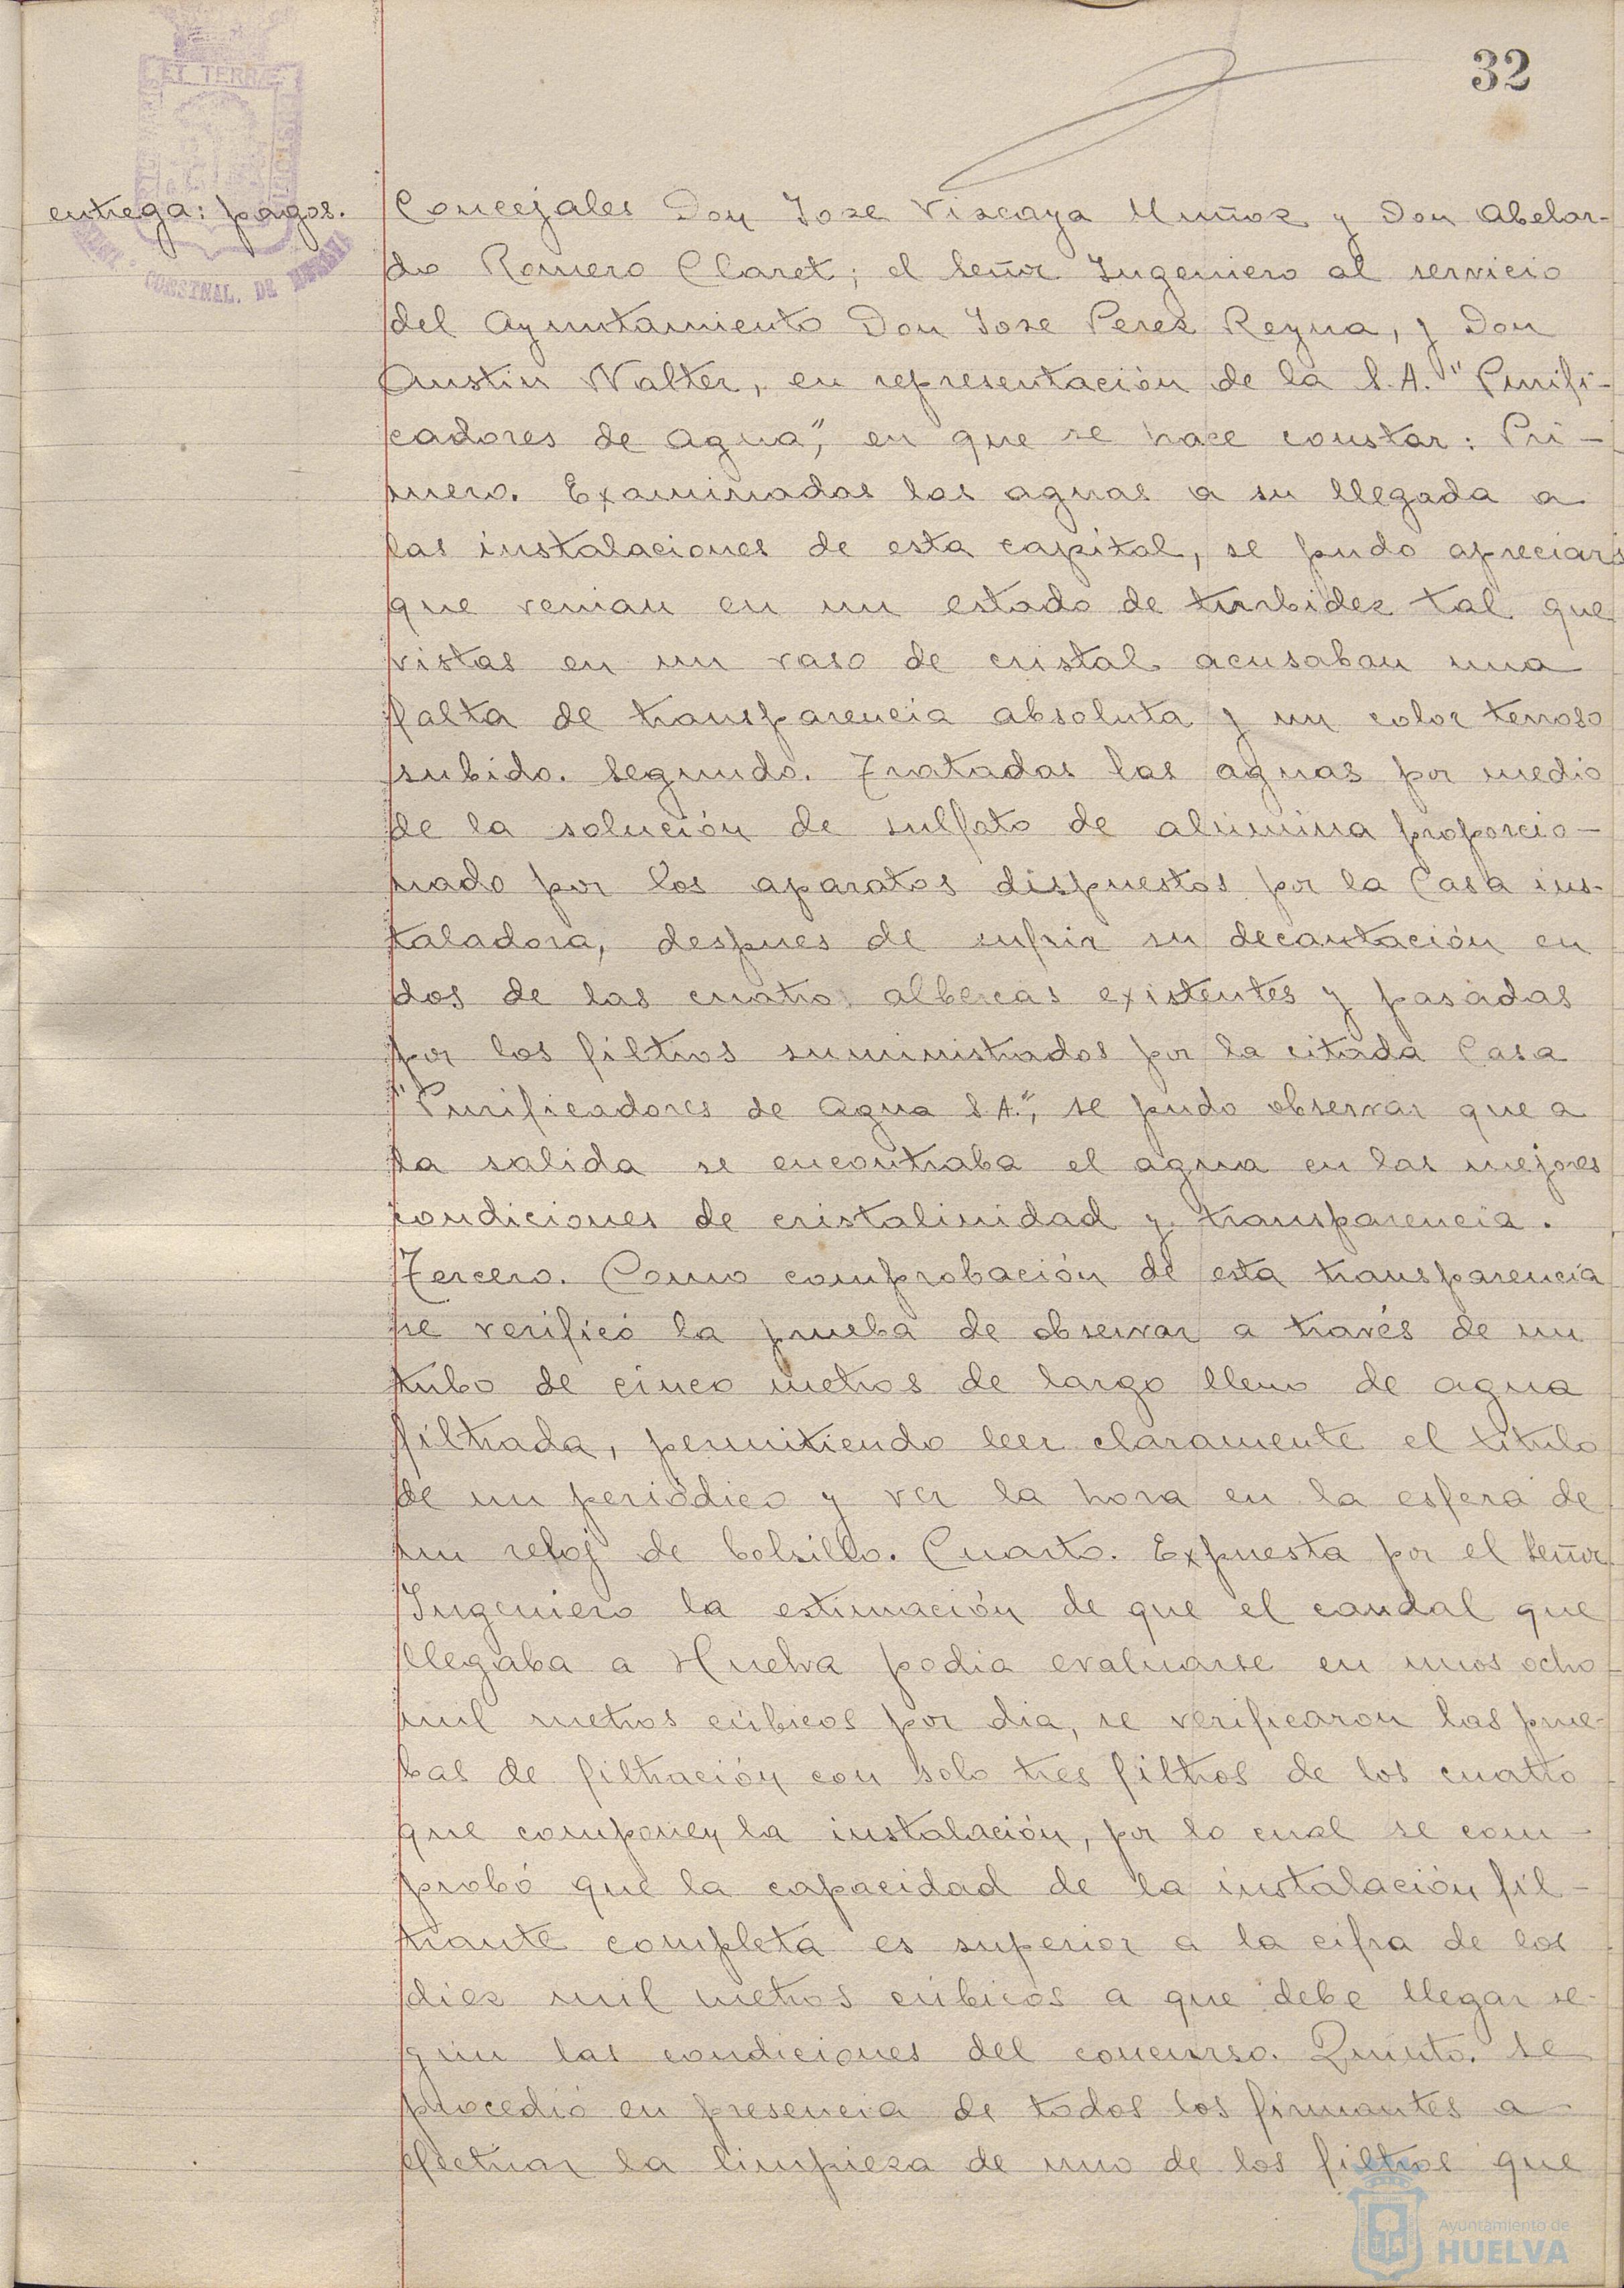 32
ET TERRÆ
CONSTNAL. DE
entrega: pagos.
Concejales Don Jose Viscaya Muñoz y Don Abelar-
do Romero Claret; el Señor Ingeniero al servicio
del Ayuntamiento Don Jose Perez Reyna, y Don
Austin Walter, en representación de la S.A. "Purifi-
cadores de Agua", en que se hace constar: Pri-
mero. Examinadas las aguas a su llegada a
las instalaciones de esta capital, se pudo apreciar
que venian en un estado de turbidez tal que
vistas en un vaso de cristal acusaban una
falta de transparencia absoluta y un color terroso
subido. Segundo. Tratadas las aguas por medio
de la solución de sulfato de alúmina proporcio-
nado por los aparatos dispuestos por la Casa ins-
taladora, despues de sufrir su decantación en
dos de las cuatro albercas existentes y pasadas
por los filtros suministrados por la citada Casa
"Purificadores de Agua S.A.", se pudo observar que a
la salida se encontraba el agua en las mejores
condiciones de cristalinidad y transparencia.
Tercero. Como comprobación de esta transparencia
se verificó la prueba de observar a través de un
tubo de cinco metros de largo lleno de agua
filtrada, permitiendo leer claramente el titulo
de un periódico y ver la hora en la esfera de
un reloj de bolsillo. Cuarto. Expuesta por el Señor
Ingeniero la estimación de que el caudal que
llegaba a Huelva podia evaluarse en unos ocho
mil metros cúbicos por dia, se verificaron las prue-
bas de filtración con solo tres filtros de los cuatro
que componen la instalación, por lo cual se com-
probó que la capacidad de la instalación fil-
trante completa es superior a la cifra de los
diez mil metros cúbicos a que debe llegar se-
gun las condiciones del concurso. Quinto. Se
procedió en presencia de todos los firmantes a
efectuar la limpieza de uno de los filtros que
Ayuntamiento de
HUELVA